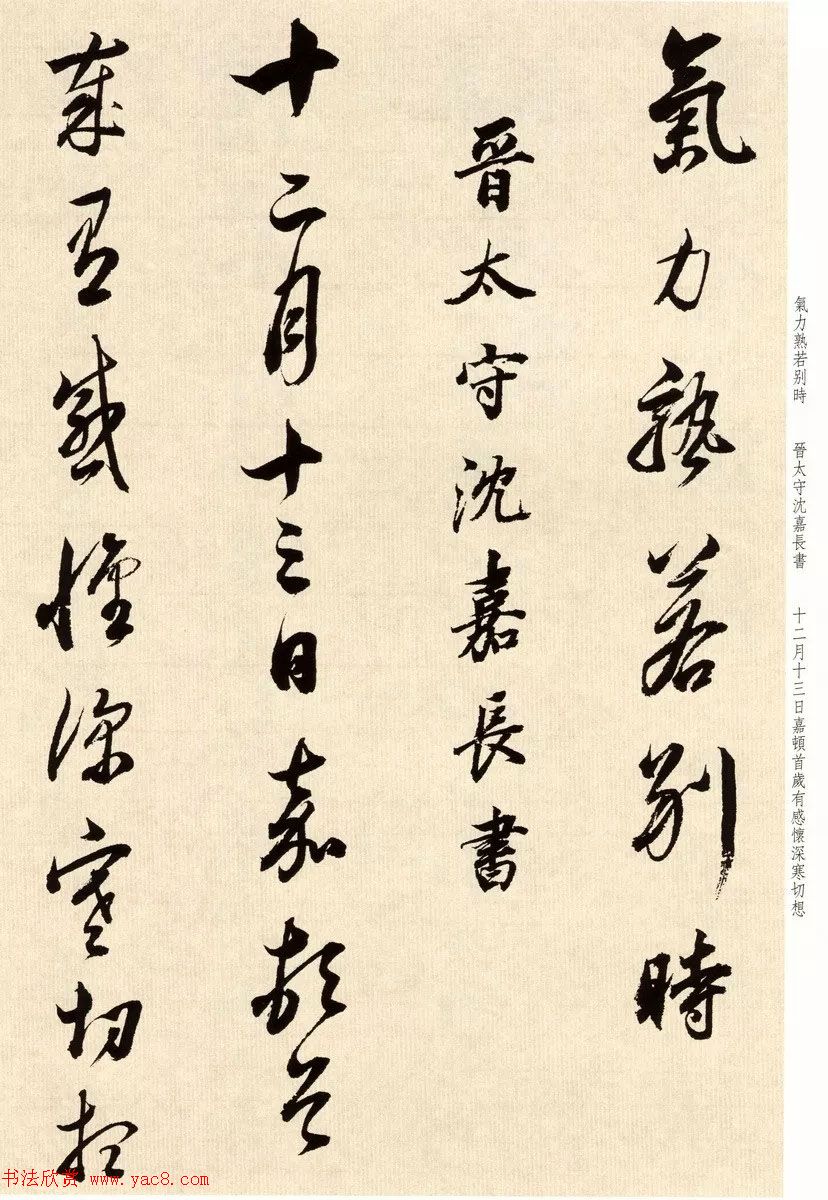 氣力孰若別時
晉太守沈嘉長書
十二月十三日嘉頓首
歲有感懷深寒切想
氣力熟若别時 晉太守沈嘉長書 十二月十三日嘉頓首歲有感懷深寒切想
书法欣赏 www.yac8.com